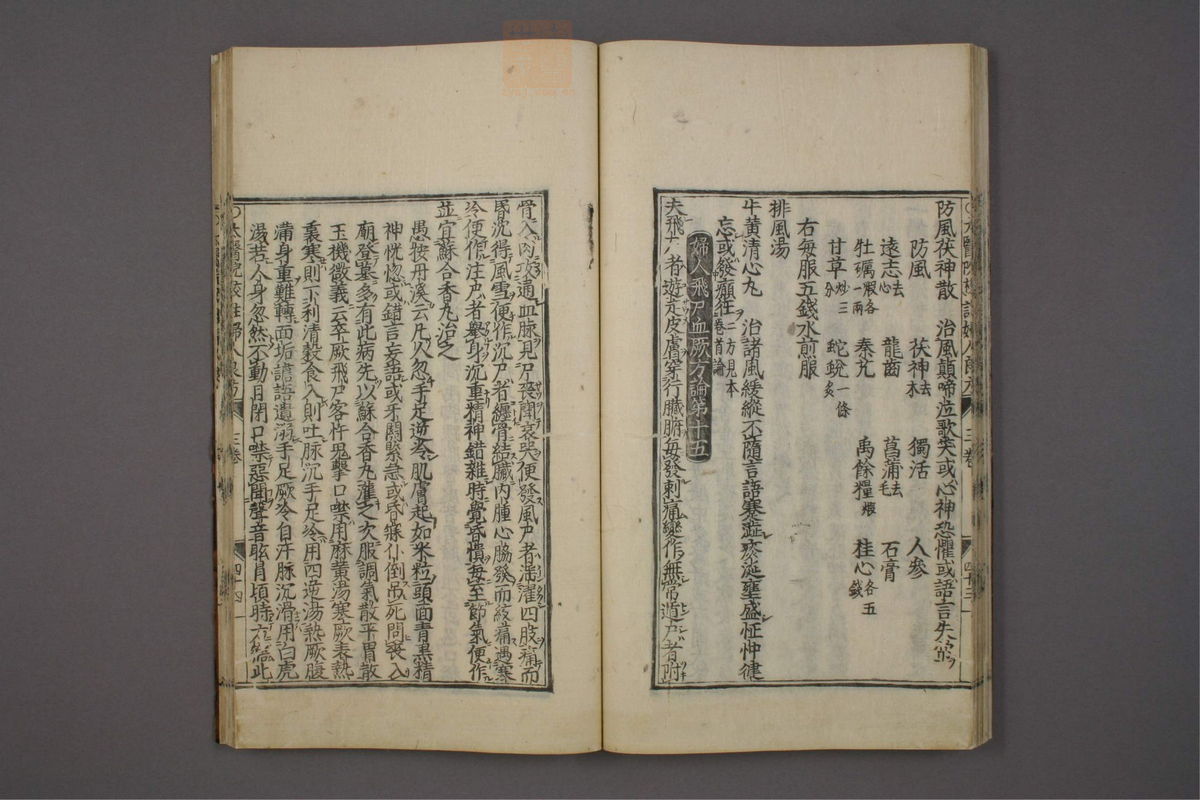 防風茯神散 治風顛啼泣歌笑或心神恐懼或語言失常
防風 茯神去木 獨活 人參
遠志去心 龍齒 菖蒲去毛 石膏
牡礪煅各一兩 秦艽 禹餘糧煅 桂心各五錢
甘草炒三分 蛇蛻一條炙
右每服五錢水煎服
排風湯
牛黃清心丸 治諸風緩縱不隨言語蹇澁痰涎壅盛怔忡健
忘或發癲狂二方見本卷首論
婦人飛尸血厥方論第十五
夫飛尸者遊走皮膚穿行臟腑每發刺痛變作無常遁尸者附
三卷 四十三
骨入肉攻遁血脉見尸喪聞哀哭便發風尸者淫濯四肢痛而
昏沉得風雪便作沉尸者纏骨結臟內腫心脇發而絞痛遇寒
冷便作注尸者舉身沉重精神錯雜時覺昏憒每至節氣便作
並宜蘇合香丸治之
愚按丹溪云凡人忽手足逆冷肌膚起如米粒頭面青黑精
神恍惚或錯言妄語或牙關緊急或昏寐仆倒吊死問喪入
廟登墓多有此病先以蘇合香丸灌之次服調氣散平胃散
玉機微義云卒厥飛尸客忤鬼擊口噤用麻黃湯寒厥表熱
裏寒則下利清穀食入則吐脉沉手足冷用四逆湯熱厥腹
滿身重難轉面垢譫語遺溺手足厥冷自汗脉沉滑用白虎
湯若人身忽然不動目閉口噤惡聞聲音眩冒頃時方
太醫院校註婦人良方 三卷 四十四